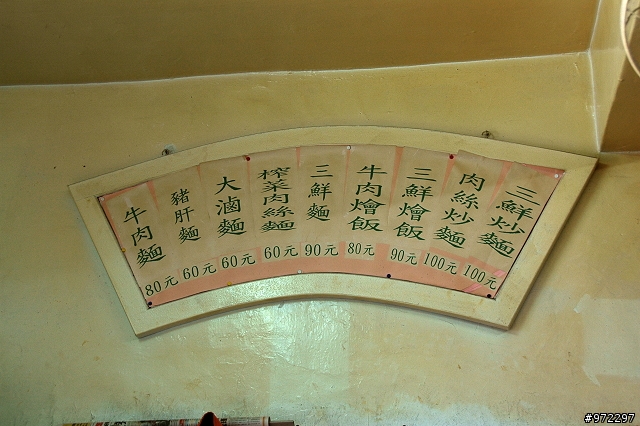 三鮮炒麵 100元
肉絲炒麵 100元
三鮮燴飯 90元
牛肉燴飯 80元
三鮮麵 90元
榨菜肉絲麵 60元
大滷麵 60元
豬肝麵 60元
牛肉麵 80元
#972297